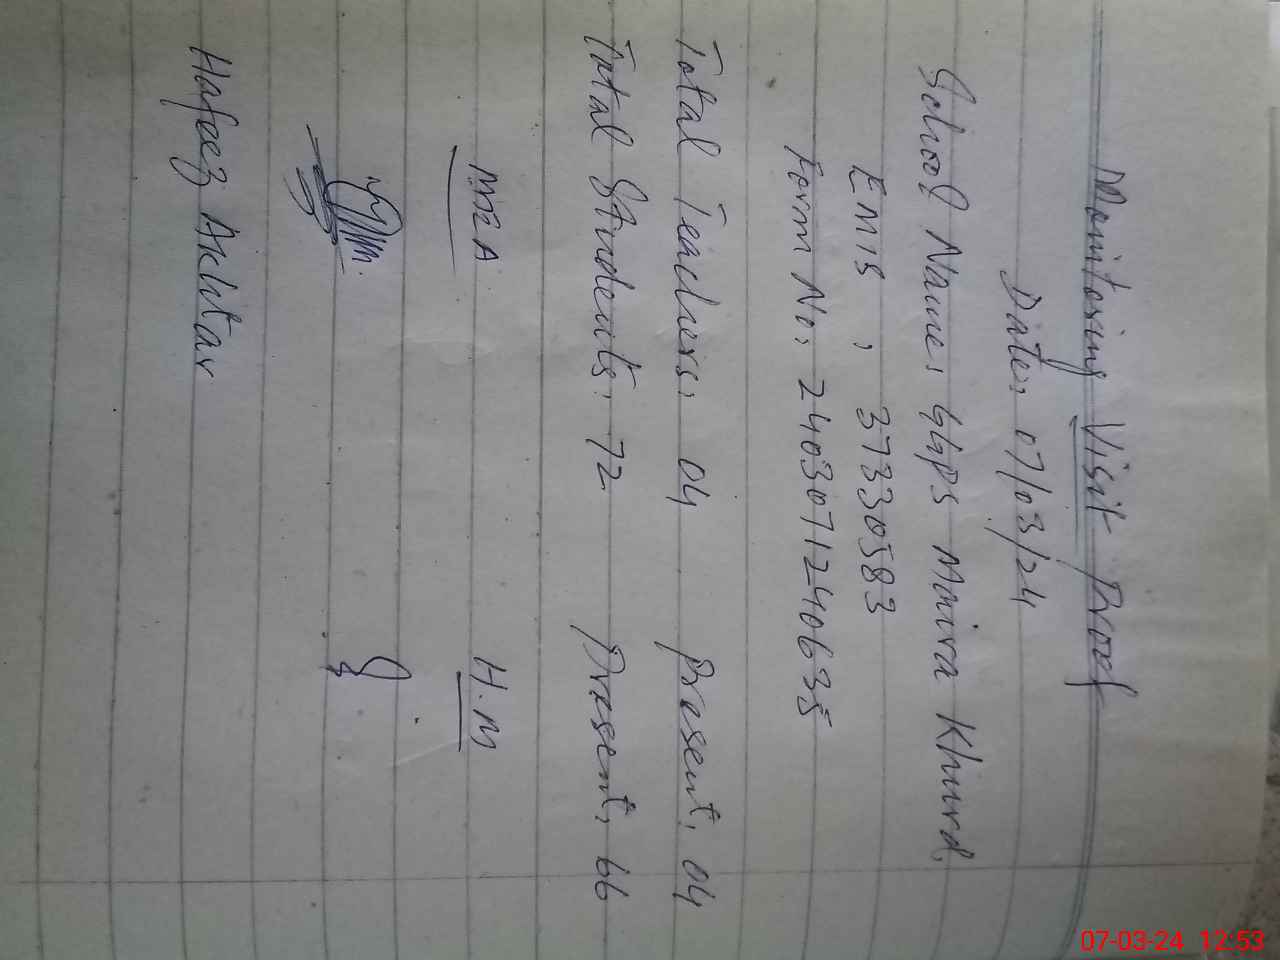 Monitoring Visit Proof
Date: 07/03/24
School Name: GGPS Maira Khurd
EMIS : 37330583
Form No: 240307124063
Total Teachers: 04 Present: 04
Total Students: 72 Present: 66
MEA H.M
Hafeez Akhtar
07-03-24 12:53